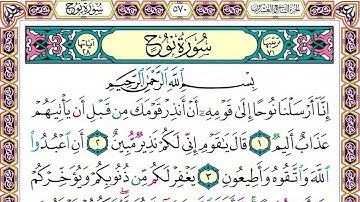 الجزء التاسع والعشرون ٥٧٠ سورة نوح
ترتيبها ٧١ سُورَةُ نُوحٍ آياتها ٢٨
بِسْمِ ٱللَّهِ ٱلرَّحْمَٰنِ ٱلرَّحِيمِ
إِنَّآ أَرْسَلْنَا نُوحًا إِلَىٰ قَوْمِهِۦٓ أَنْ أَنذِرْ قَوْمَكَ مِن قَبْلِ أَن يَأْتِيَهُمْ
عَذَابٌ أَلِيمٌ ١ قَالَ يَٰقَوْمِ إِنِّى لَكُمْ نَذِيرٌ مُّبِينٌ ٢ أَنِ ٱعْبُدُوا۟
ٱللَّهَ وَٱتَّقُوهُ وَأَطِيعُونِ ٣ يَغْفِرْ لَكُم مِّن ذُنُوبِكُمْ وَيُؤَخِّرْكُمْ